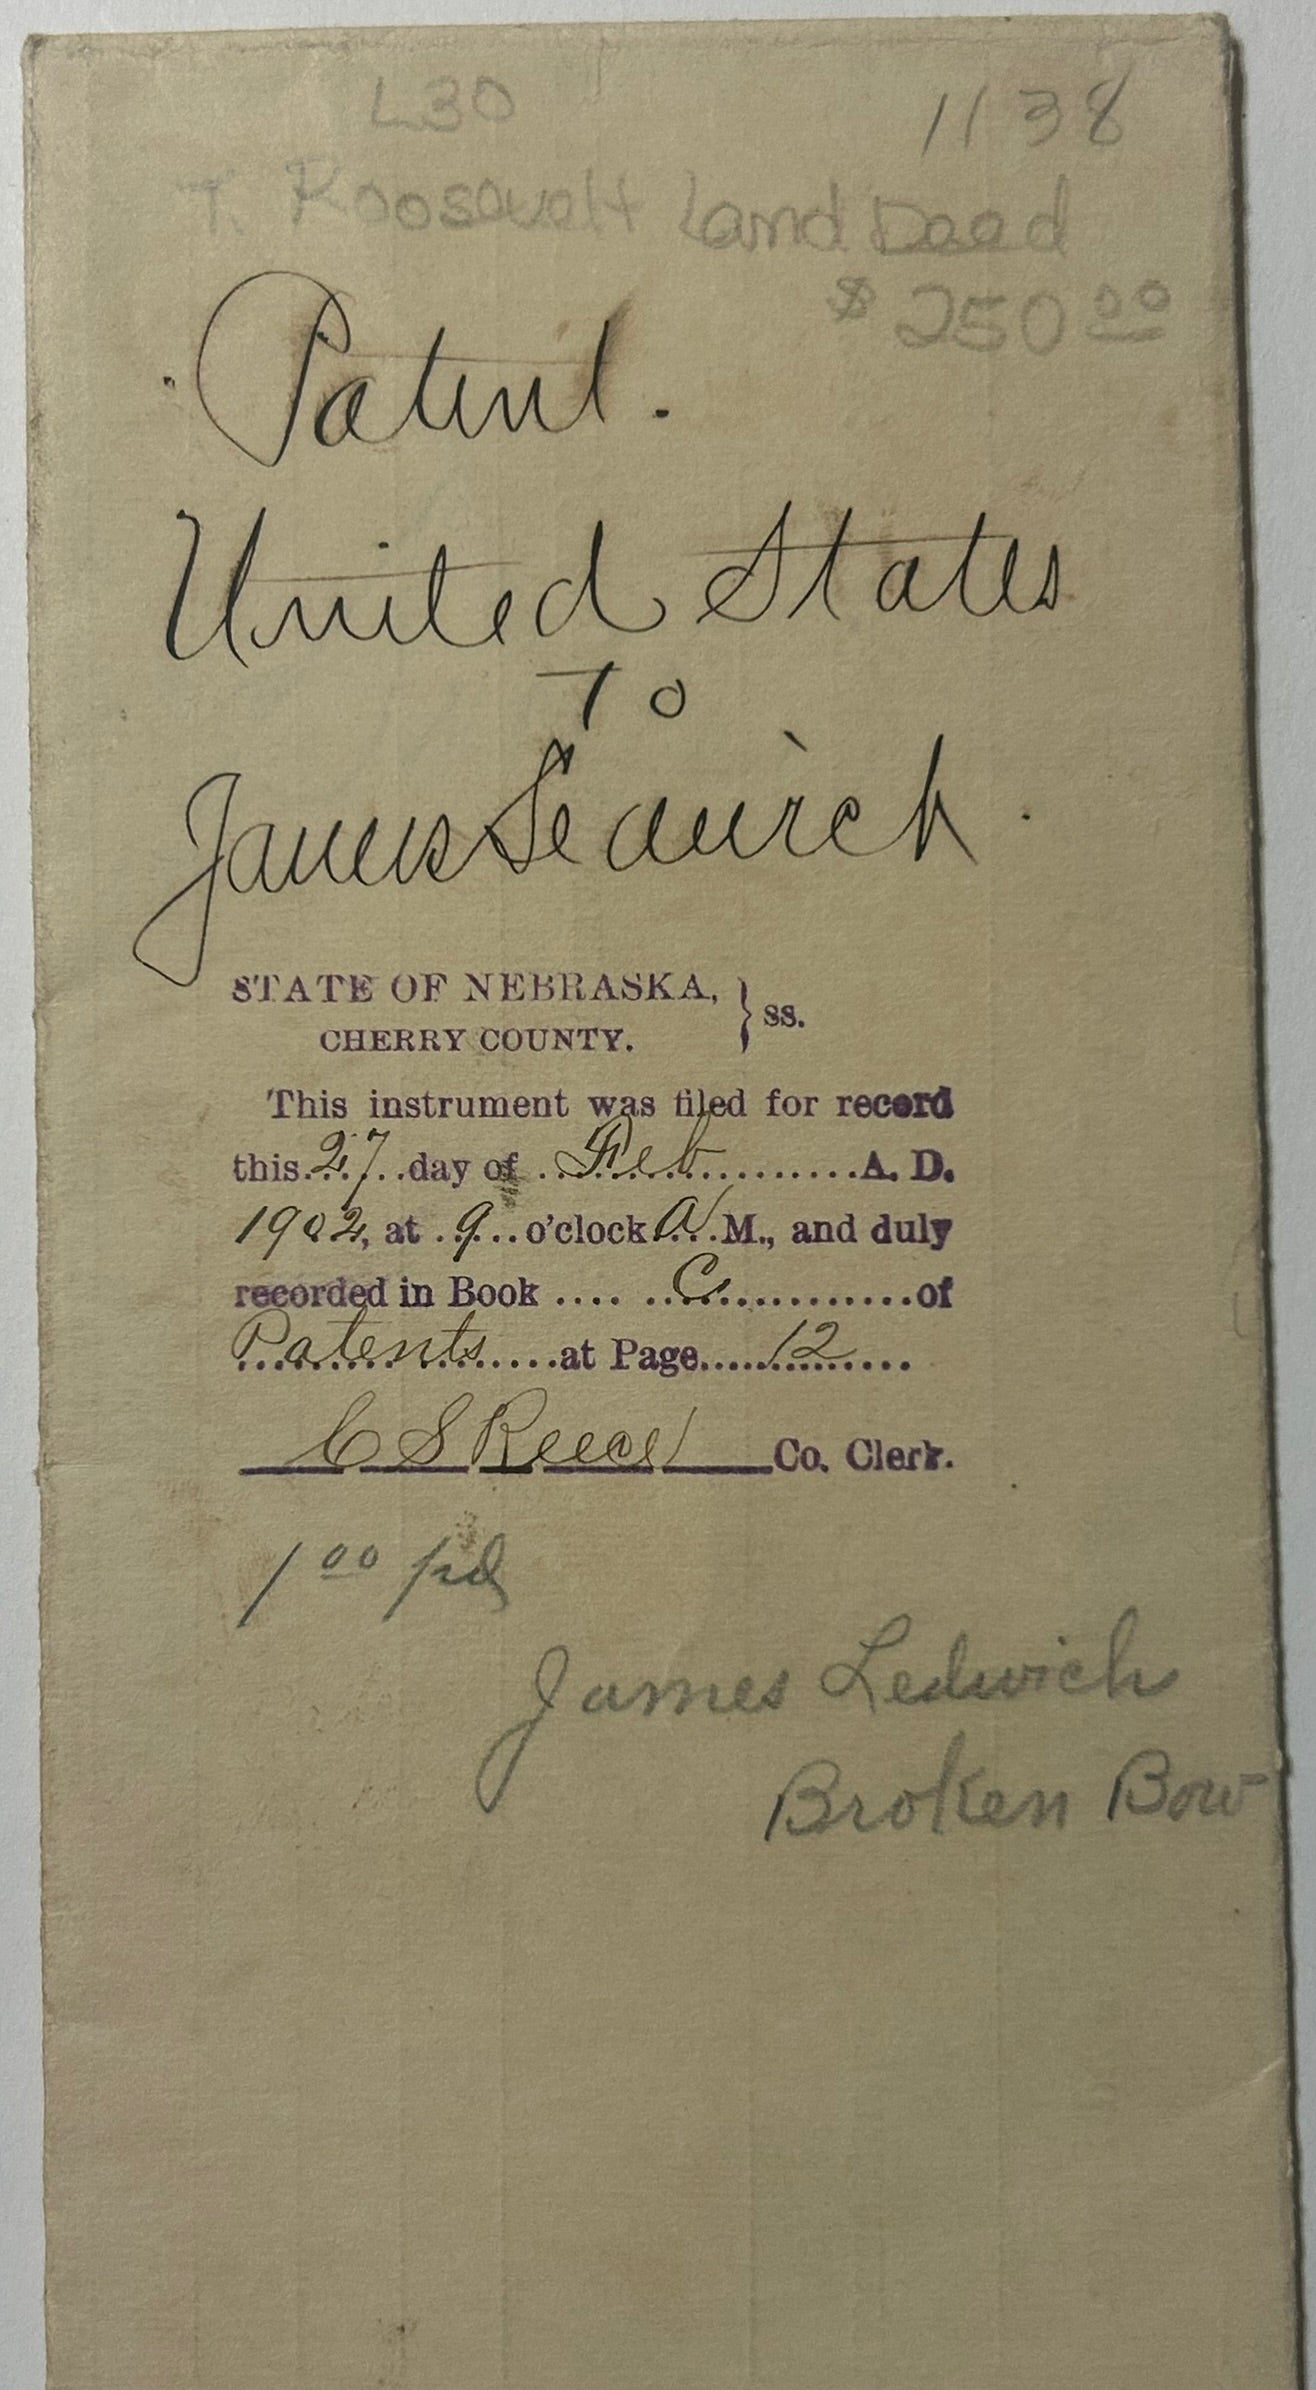 L30
1138
T. Roosevelt Land Deed
$250 00
Patent.
United States
To
James Ledwich.
STATE OF NEBRASKA, } ss.
CHERRY COUNTY.
This instrument was filed for record
this 27 day of Feb A. D.
1902, at 9 o'clock A M., and duly
recorded in Book C of
Patents at Page 12
C S Reece Co. Clerk.
1 00 pd
James Ledwich
Broken Bow